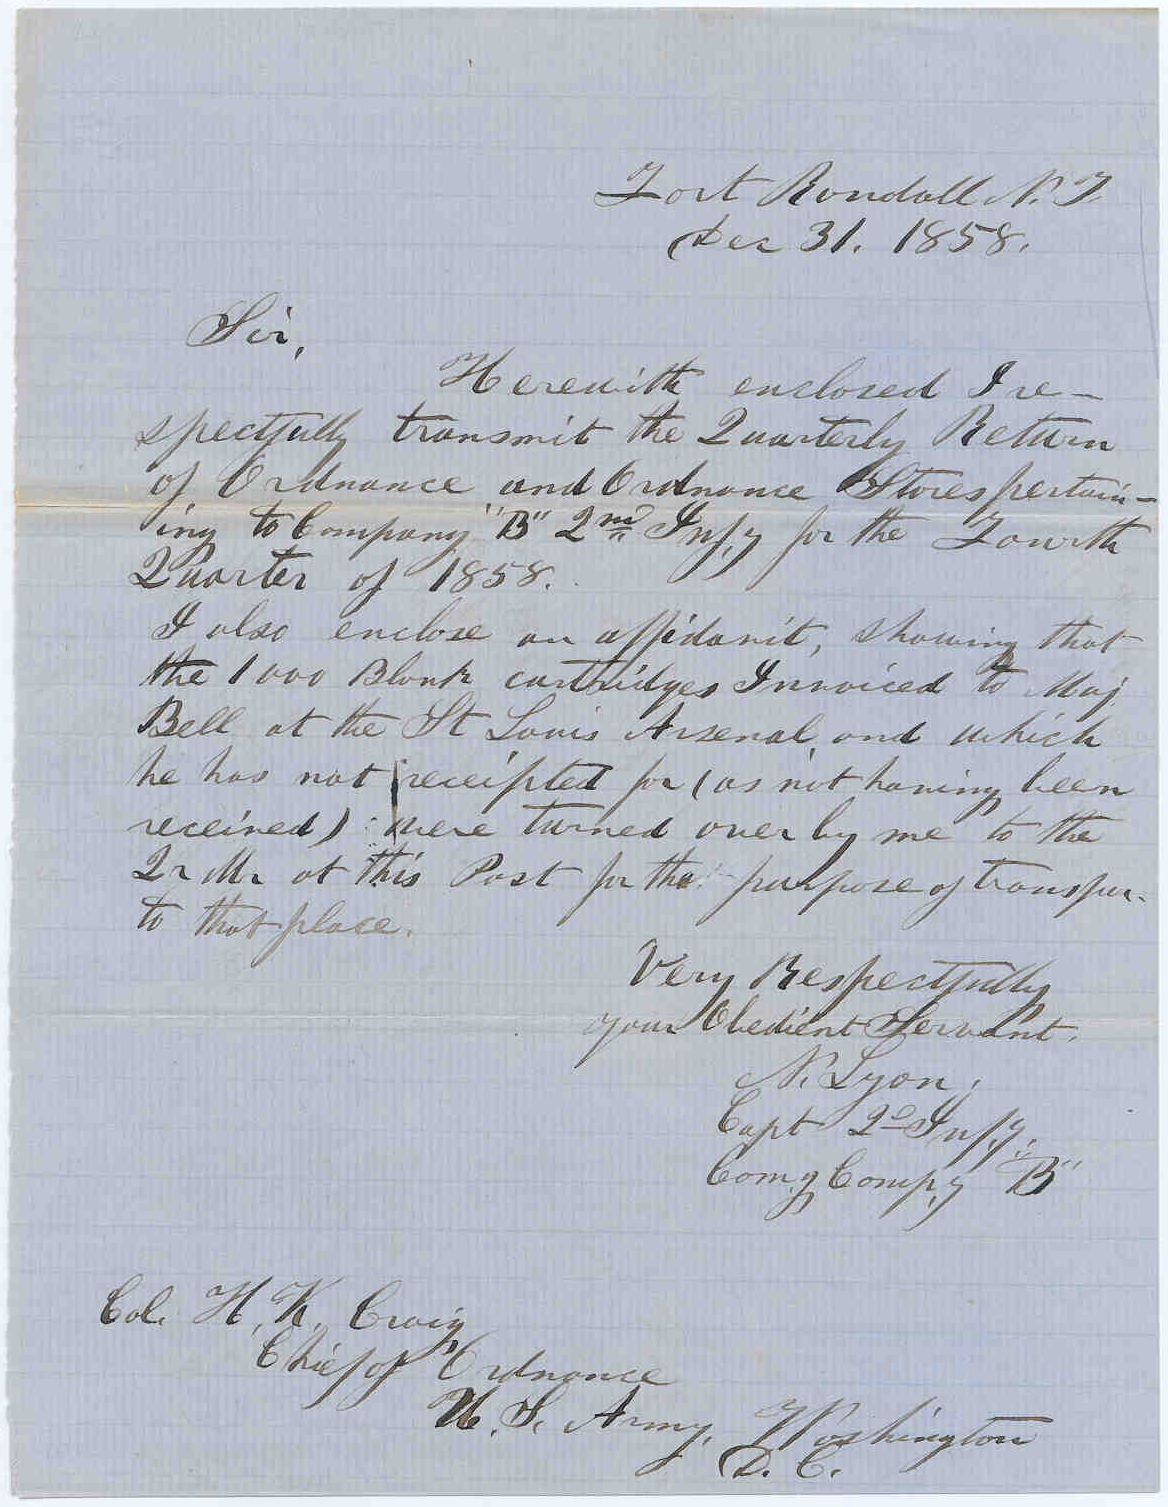 Fort Randall N. T.
Dec 31. 1858.
Sir,
Herewith enclosed I re-
spectfully transmit the Quarterly Return
of Ordnance and Ordnance Stores pertain-
ing to Company "B" 2nd Inf,y for the Fourth
Quarter of 1858.
I also enclose an affidavit, showing that
the 1000 Blank cartridges Invoiced to Maj.
Bell at the St Louis Arsenal, and which
he has not receipted for (as not having been
received) were turned over by me to the
Qr Mr at this Post for the purpose of transpor.
to that place.
Very Respectfully
your Obedient Servant.
N. Lyon,
Capt 2d Inf,y,
Com,g Comp,y "B"
Col. H. K. Craig
Chief of Ordnance
U. S. Army, Washington
D. C.